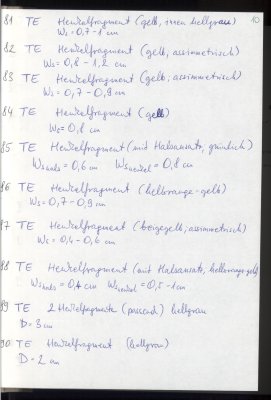 10
81 TE Henkelfragment (gelb, innen hellgrau)
Ws = 0,7 - 1 cm
82 TE Henkelfragment (gelb, assimetrisch)
Ws = 0,8 - 1,2 cm
83 TE Henkelfragment (gelb, assimetrisch)
Ws = 0,7 - 0,9 cm
84 TE Henkelfragment (gelb)
Ws = 0,8 cm
85 TE Henkelfragment (mit Halsansatz, grünlich)
Ws Hals = 0,6 cm Ws Henkel = 0,8 cm
86 TE Henkelfragment (hellorange-gelb)
Ws = 0,7 - 0,9 cm
87 TE Henkelfragment (beigegelb, assimetrisch)
Ws = 0,4 - 0,6 cm
88 TE Henkelfragment (mit Halsansatz, hellorange-gelb)
Ws Hals = 0,4 cm Ws Henkel = 0,5 - 1 cm
89 TE 2 Henkelfragmente (passend) hellgrau
D = 3 cm
90 TE Henkelfragment (hellgrau)
D = 2 cm